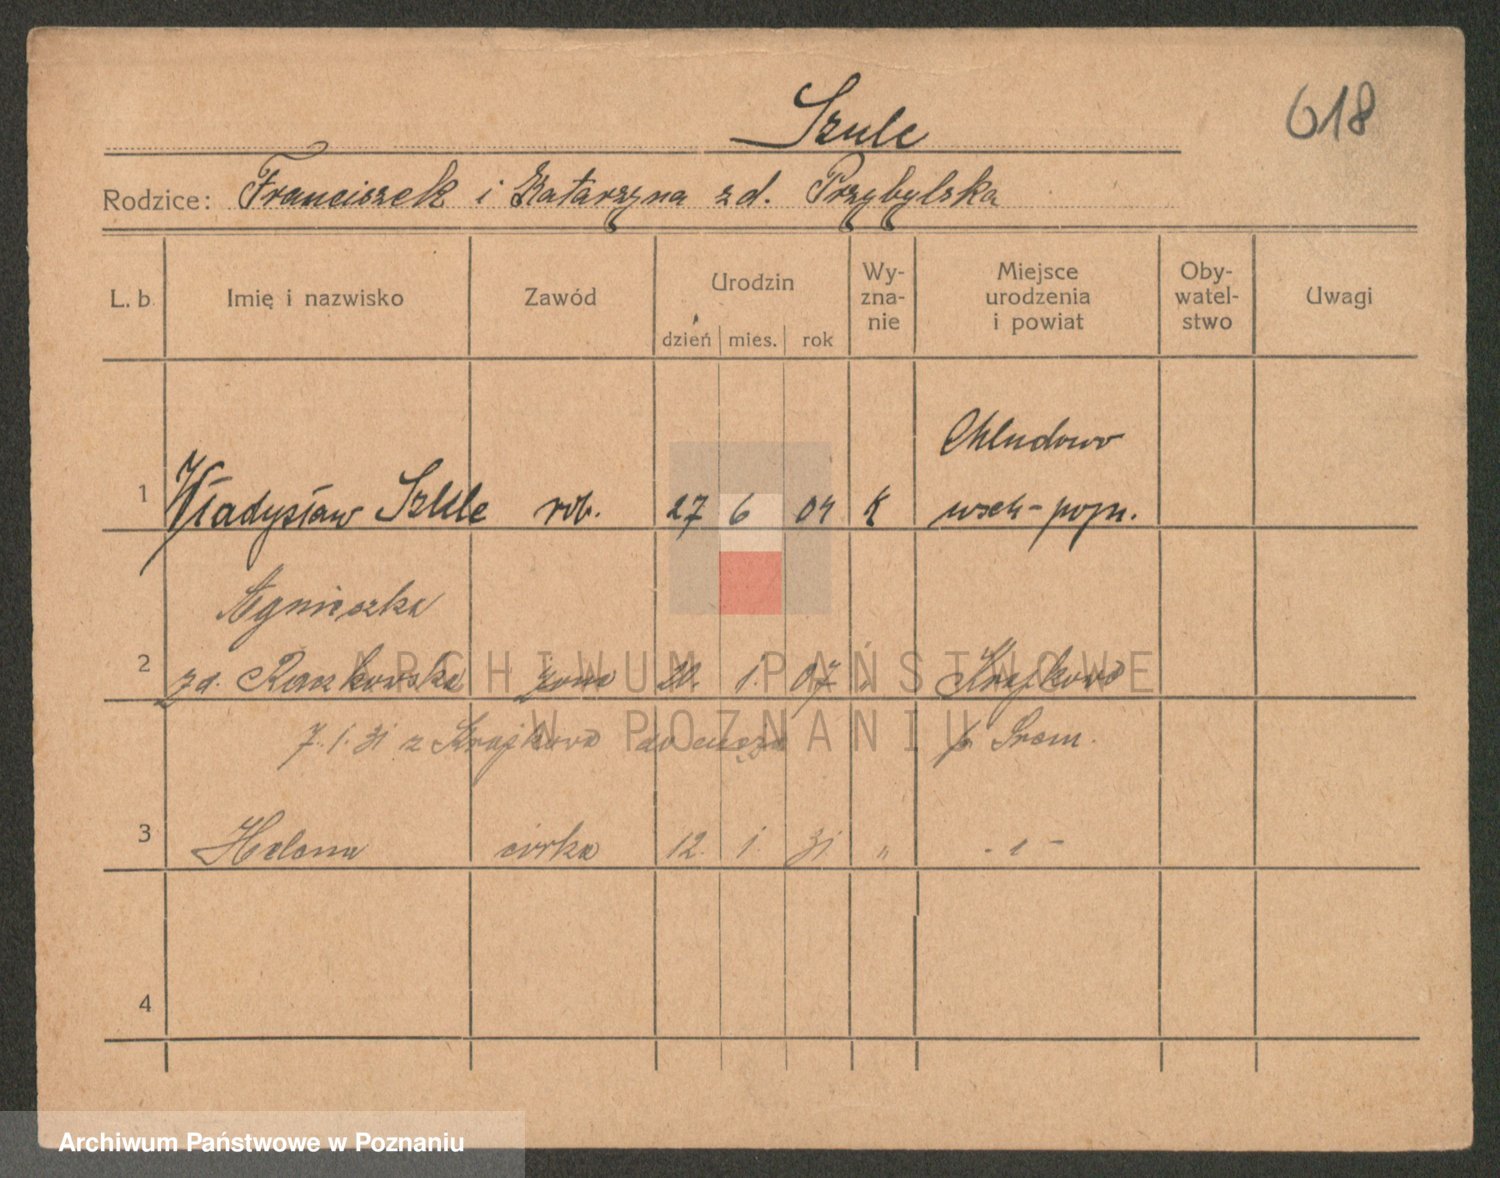 Szulc
618
Rodzice: Franciszek i Katarzyna zd. Przybylska
L. b. Imię i nazwisko Zawód Urodzin dzień mies. rok Wy-zna-nie Miejsce urodzenia i powiat Oby-watel-stwo Uwagi
Chludowo
1 Władysław Szulc rob. 27 6 04 k wsch-pozn.
Agnieszka
2 zd. Raszkowska żona 20. 1. 07 " Krajkowo
7.1.31 z Krajkowa do męża p. Śrem.
3 Helena córka 12. 1. 31 " - " -
4
ARCHIWUM PAŃSTWOWE
W POZNANIU
Archiwum Państwowe w Poznaniu